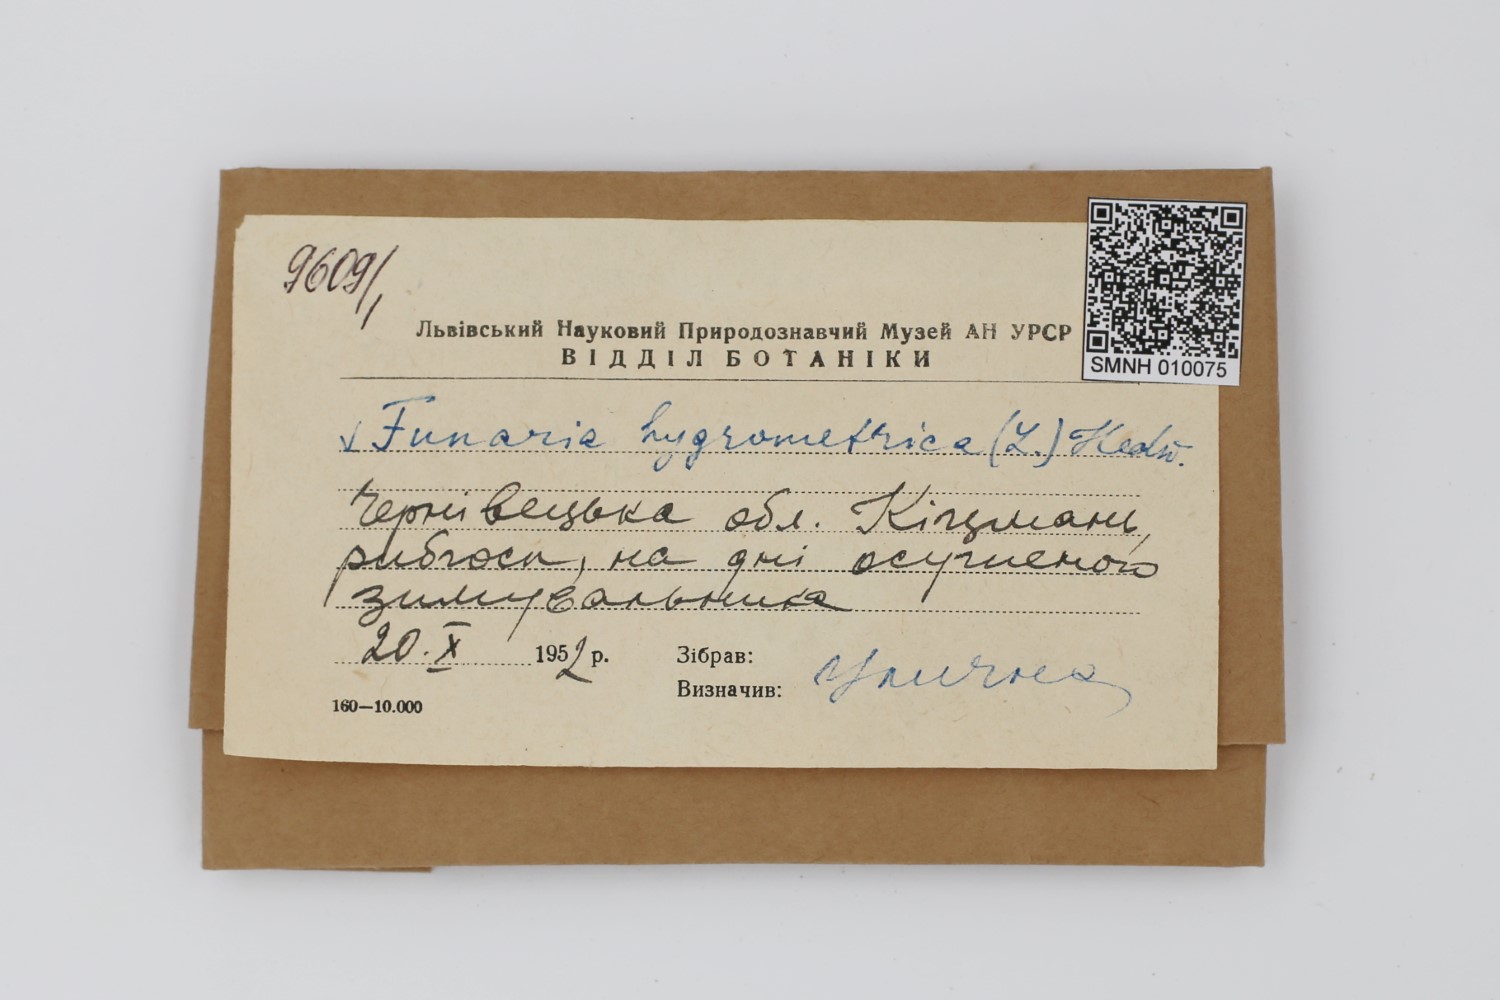 9609/1
Львівський Науковий Природознавчий Музей АН УРСР
ВІДДІЛ БОТАНІКИ
SMNH 010075
√ Funaria hygrometrica (L.) Hedw.
Чернівецька обл. Кіцмань,
рибгосп, на дні осушеного
зимувальника
20. X 1952 р.
Зібрав:
Визначив: Улична
160—10.000